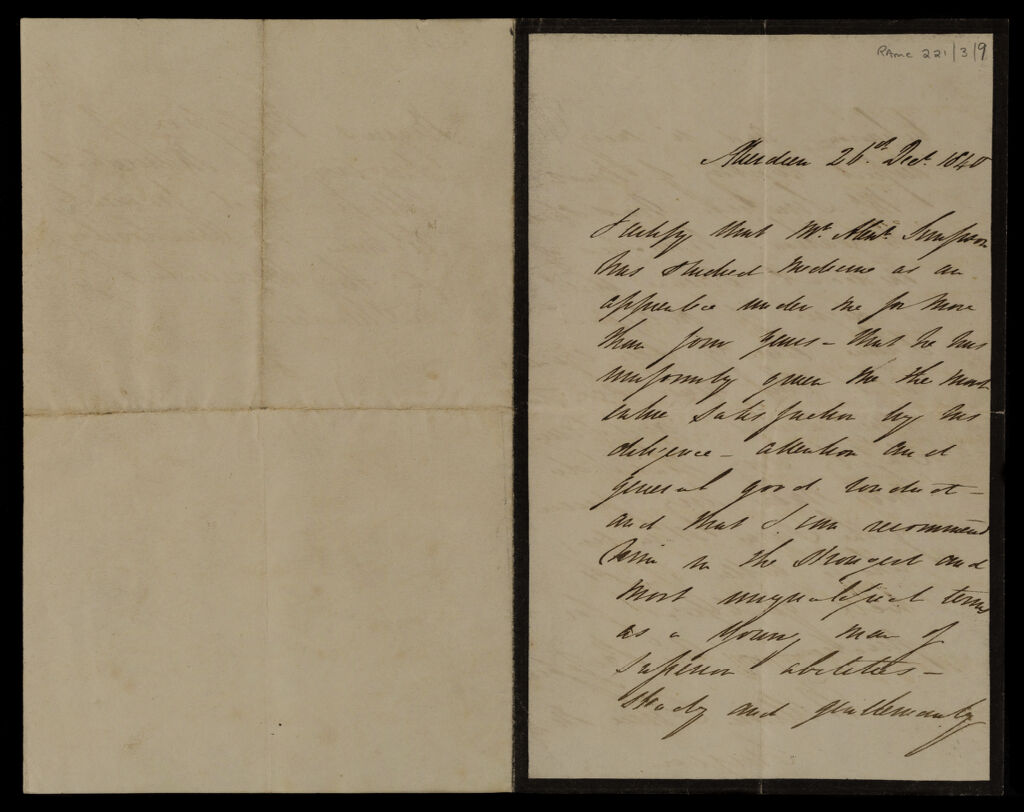 RAMC 221/3/9
Aberdeen 26th. Dect. 1840
I certify that Mr. Alexr. Simpson
has studied medicine as an
apprentice under me for more
than four years – that he has
uniformly given me the most
entire satisfaction by his
diligence – attention and
general good conduct –
and that I can recommend
him in the strongest and
most unqualified terms
as a young man of
superior abilities –
steady and gentlemanly